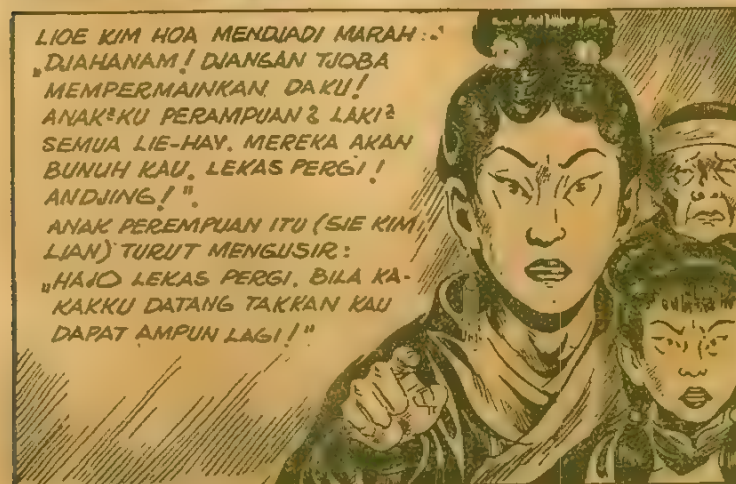 LIOE KIM HOA MENDJADI MARAH:
„DJAHANAM! DJANGAN TJOBA
MEMPERMAINKAN DAKU!
ANAK²KU PERAMPUAN² LAKI²
SEMUA LIE-HAY. MEREKA AKAN
BUNUH KAU. LEKAS PERGI!
ANDJING!".
ANAK PEREMPUAN ITU (SIE KIM
LIAN) TURUT MENGUSIR:
„HAJO LEKAS PERGI. BILA KA-
KAKKU DATANG TAKKAN KAU
DAPAT AMPUN LAGI!"